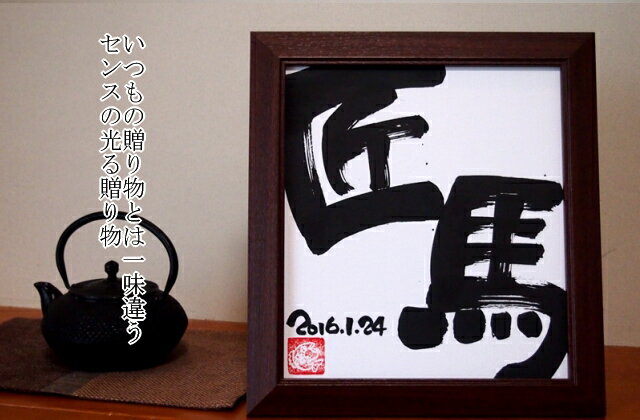 いつもの贈り物とは一味違う
センスの光る贈り物
匠馬
2016.1.24